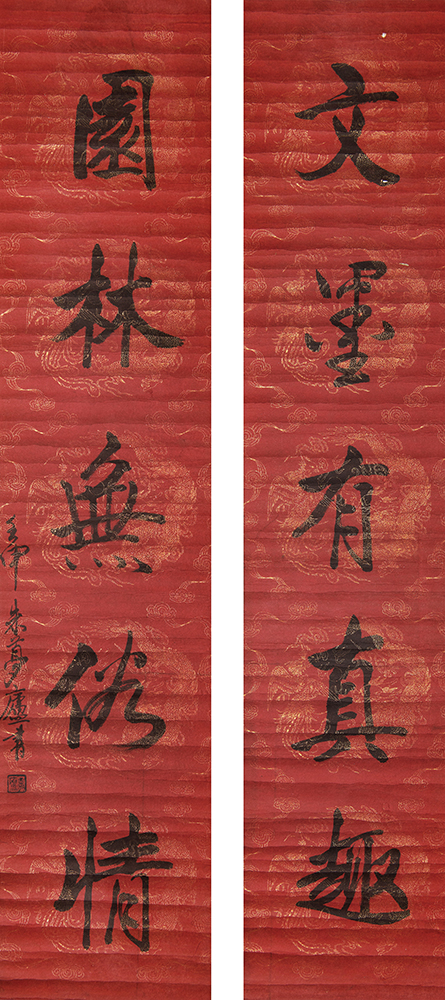 文墨有真趣
園林無俗情
壬申 朱夢廬書